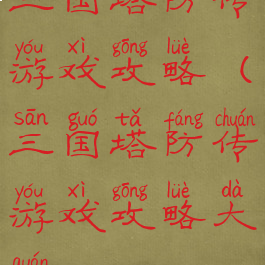 三国塔防传
yóu xì gōng lüè
游戏攻略（
sān guó tǎ fáng chuán
三国塔防传
yóu xì gōng lüè dà
游戏攻略大
quán